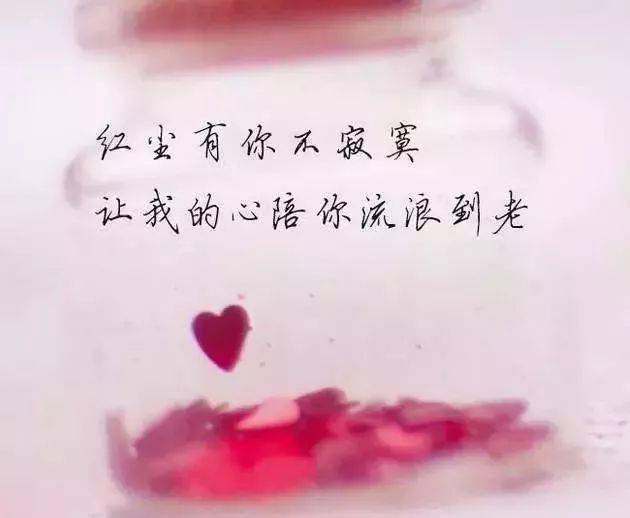 红尘有你不寂寞
让我的心陪你流浪到老